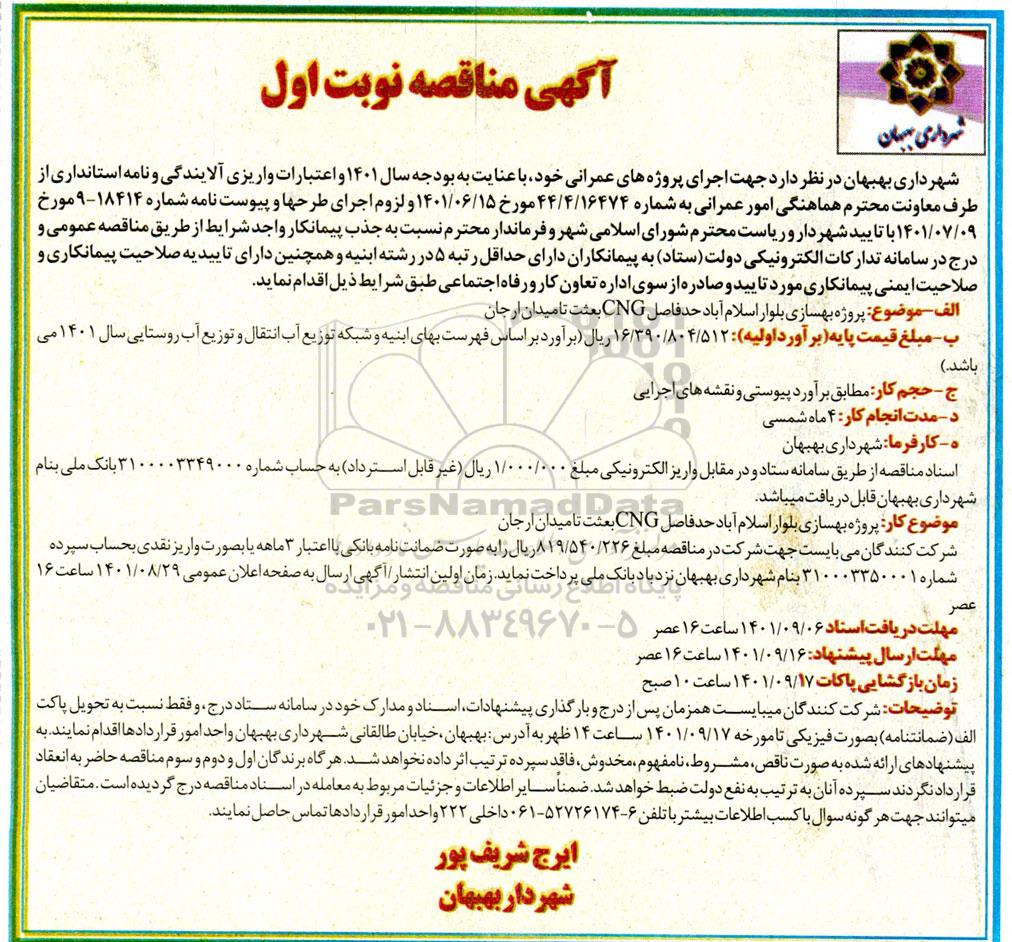 شهرداری بهبهان
آگهی مناقصه نوبت اول
شهرداری بهبهان در نظر دارد جهت اجرای پروژه های عمرانی خود، با عنایت به بودجه سال ۱۴۰۱ و اعتبارات واریزی آلایندگی و نامه استانداری از
طرف معاونت محترم هماهنگی امور عمرانی به شماره ۴۴/۴/۱۶۴۷۴ مورخ ۱۴۰۱/۰۶/۱۵ و لزوم اجرای طرحها و پیوست نامه شماره ۱۸۴۱۴-۹ مورخ
۱۴۰۱/۰۷/۰۹ با تایید شهردار و ریاست محترم شورای اسلامی شهر و فرماندار محترم نسبت به جذب پیمانکار واجد شرایط از طریق مناقصه عمومی و
درج در سامانه تدارکات الکترونیکی دولت (ستاد) به پیمانکاران دارای حداقل رتبه ۵ در رشته ابنیه و همچنین دارای تاییدیه صلاحیت پیمانکاری و
صلاحیت ایمنی پیمانکاری مورد تایید و صادره از سوی اداره تعاون کار و رفاه اجتماعی طبق شرایط ذیل اقدام نماید.
الف-موضوع: پروژه بهسازی بلوار اسلام آباد حدفاصل CNG بعثت تا میدان ارجان
ب-مبلغ قیمت پایه(برآورد اولیه): ۱۶/۳۹۰/۸۰۴/۵۱۲ ریال (برآورد بر اساس فهرست بهای ابنیه و شبکه توزیع آب انتقال و توزیع آب روستایی سال ۱۴۰۱ می
باشد.)
ج-حجم کار: مطابق برآورد پیوستی و نقشه های اجرایی
د-مدت انجام کار: ۴ ماه شمسی
ه-کارفرما: شهرداری بهبهان
اسناد مناقصه از طریق سامانه ستاد و در مقابل واریز الکترونیکی مبلغ ۱/۰۰۰/۰۰۰ ریال (غیر قابل استرداد) به حساب شماره ۳۱۰۰۰۰۳۳۴۹۰۰۰ بانک ملی بنام
شهرداری بهبهان قابل دریافت میباشد.
ParsNamadData
موضوع کار: پروژه بهسازی بلوار اسلام آباد حدفاصل CNG بعثت تا میدان ارجان
شرکت کنندگان می بایست جهت شرکت در مناقصه مبلغ ۸۱۹/۵۴۰/۲۲۶ ریال را به صورت ضمانت نامه بانکی با اعتبار ۳ ماهه یا بصورت واریز نقدی بحساب سپرده
شماره ۳۱۰۰۰۳۳۵۰۰۰۱ بنام شهرداری بهبهان نزد باد بانک ملی پرداخت نماید. زمان اولین انتشار/آگهی ارسال به صفحه اعلان عمومی ۱۴۰۱/۰۸/۲۹ ساعت ۱۶
عصر
پایگاه اطلاع رسانی مناقصه و مزایده
۰۲۱-۸۸۳۴۹۶۷۰-۵
مهلت دریافت اسناد ۱۴۰۱/۰۹/۰۶ ساعت ۱۶ عصر
مهلت ارسال پیشنهاد: ۱۴۰۱/۰۹/۱۶ ساعت ۱۶ عصر
زمان بازگشایی پاکات ۱۴۰۱/۰۹/۱۷ ساعت ۱۰ صبح
توضیحات: شرکت کنندگان میبایست همزمان پس از درج و بارگذاری پیشنهادات، اسناد و مدارک خود در سامانه ستاد درج، و فقط نسبت به تحویل پاکت
الف (ضمانتنامه) بصورت فیزیکی تا مورخه ۱۴۰۱/۰۹/۱۷ ساعت ۱۴ ظهر به آدرس: بهبهان، خیابان طالقانی شهرداری بهبهان واحد امور قراردادها اقدام نمایند. به
پیشنهادهای ارائه شده به صورت ناقص، مشروط، نامفهوم، مخدوش، فاقد سپرده ترتیب اثر داده نخواهد شد. هرگاه برندگان اول و دوم و سوم مناقصه حاضر به انعقاد
قرارداد نگردند سپرده آنان به ترتیب به نفع دولت ضبط خواهد شد. ضمناً سایر اطلاعات و جزئیات مربوط به معامله در اسناد مناقصه درج گردیده است. متقاضیان
میتوانند جهت هر گونه سوال با کسب اطلاعات بیشتر با تلفن ۶-۵۲۷۲۶۱۷۴-۰۶۱ داخلی ۲۲۲ واحد امور قراردادها تماس حاصل نمایند.
ایرج شریف پور
شهردار بهبهان